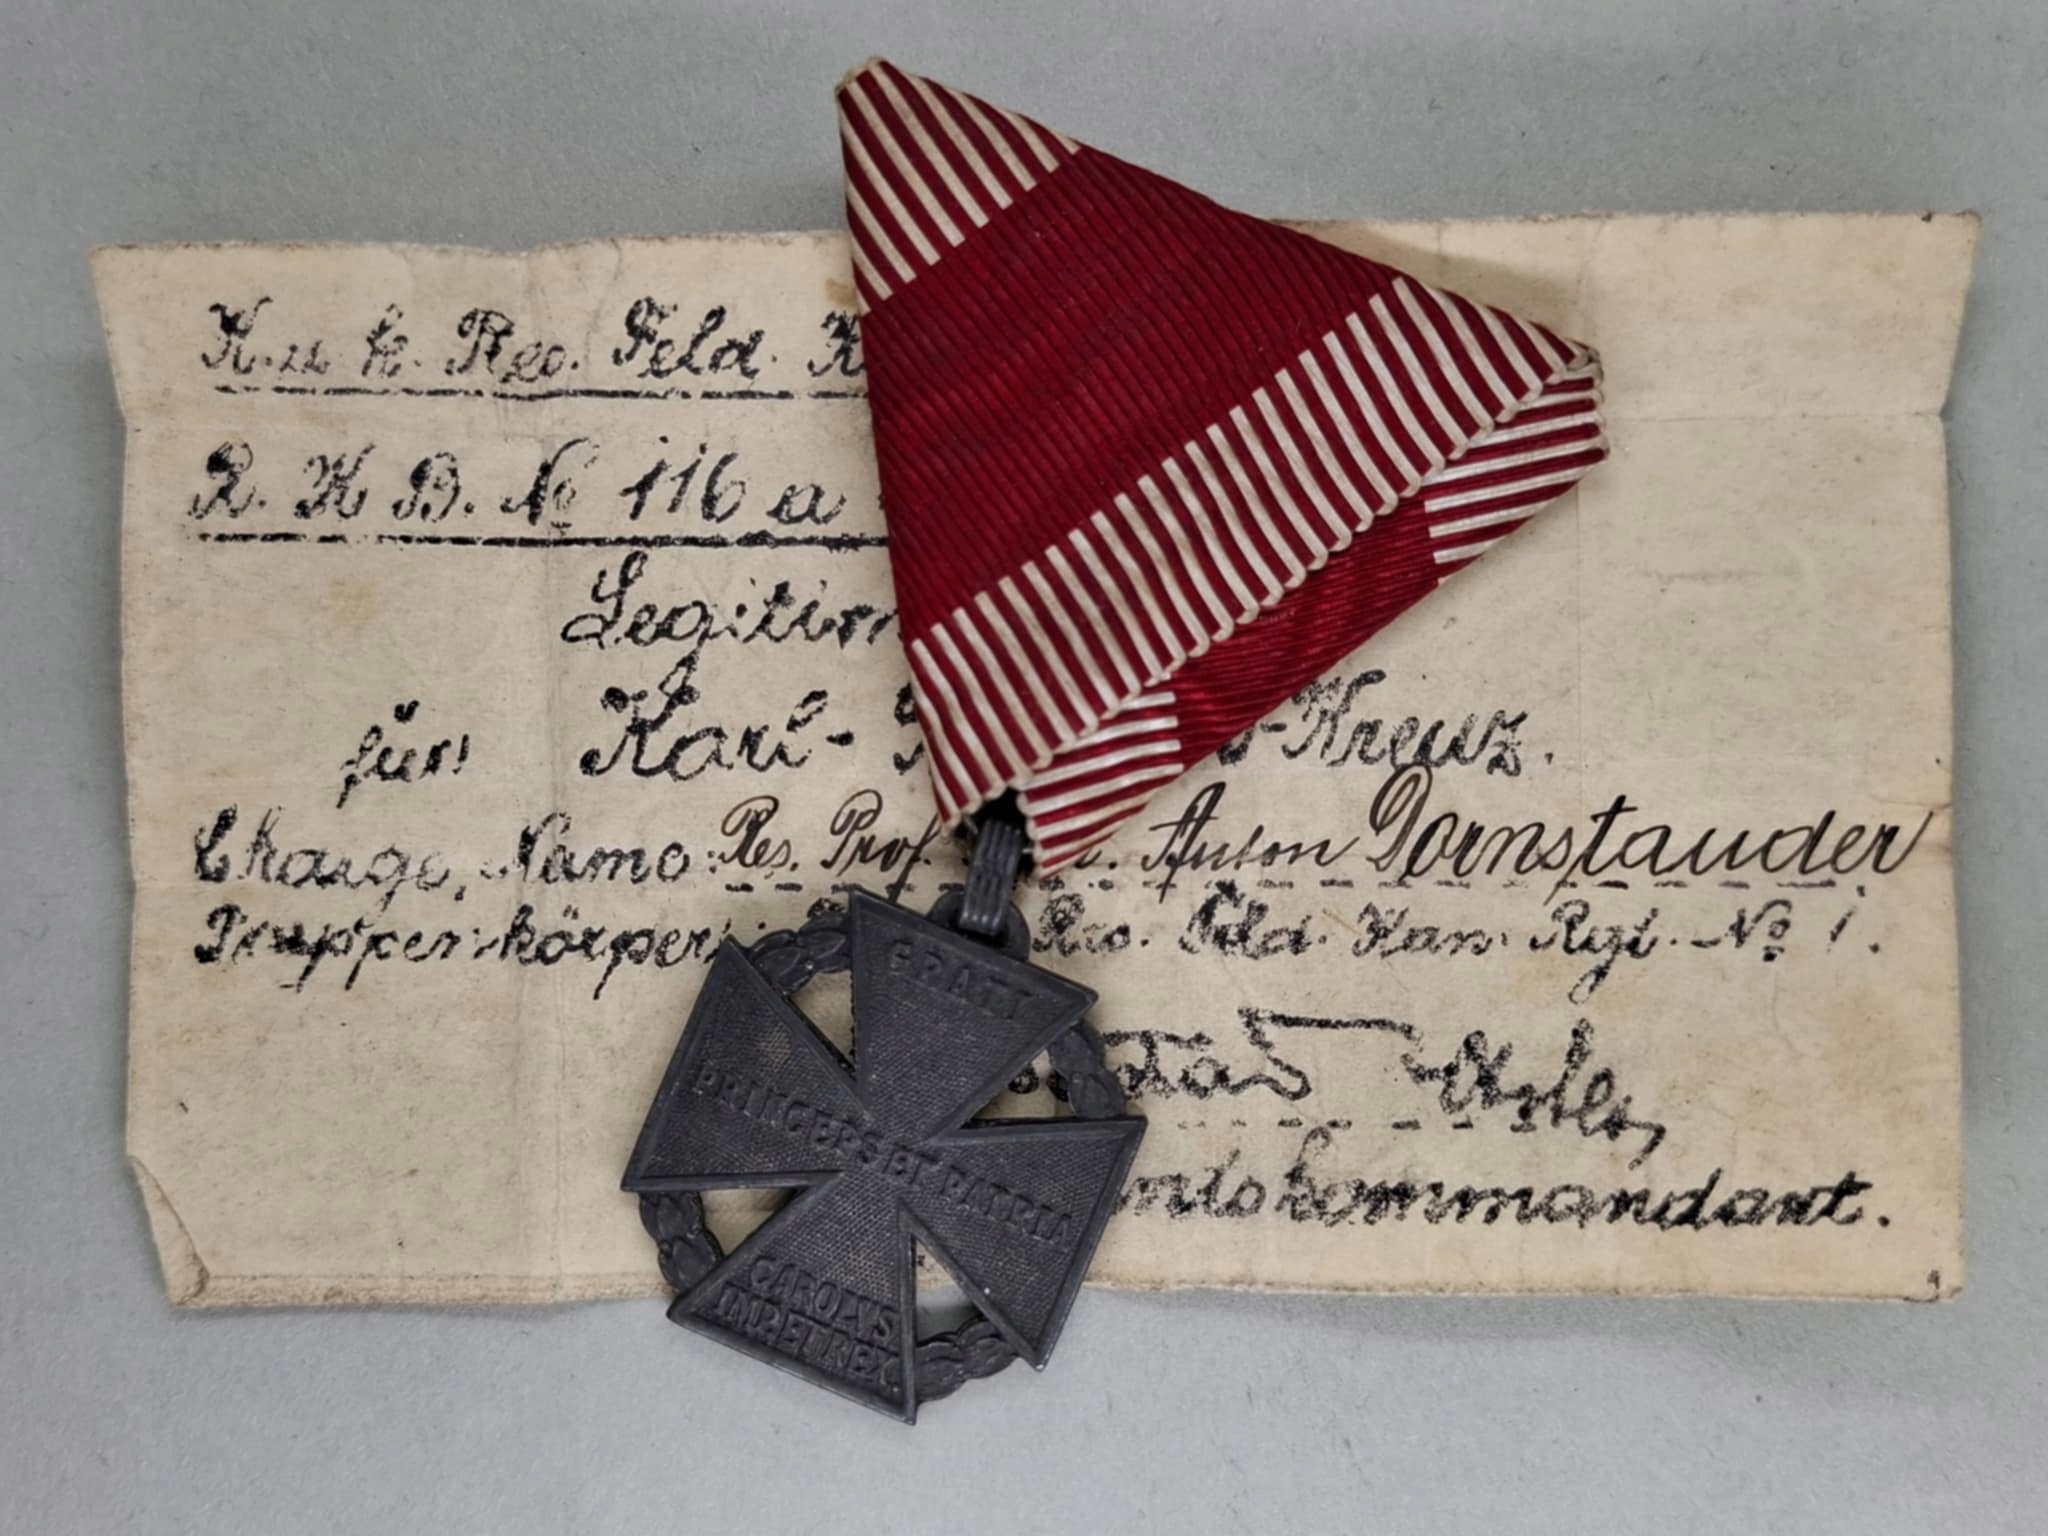 K. u. k. Res. Feld. K
R. K B. № 116 a
Legitim
für Karl- -Kreuz.
Charge, Name: Res. Prof. Anton Dornstauder
Truppenkörper: Res. Feld. Kan. Rgt. № 1.
ndskommandant.
GRATI
PRINCEPS ET PATRIA
CAROLVS
IMP.ET REX.